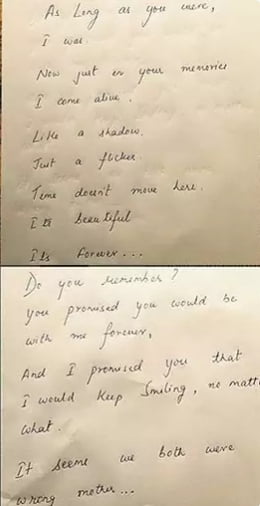 As Long as you were,
I was.
Now just in your memories
I come alive.
Like a shadow.
Just a flicker.
Time doesn't move here.
Its beautiful
Its forever...
Do you remember?
you promised you would be
with me forever,
And I promised you that
I would keep Smiling, no matt
what.
It seems we both were
wrong mother...